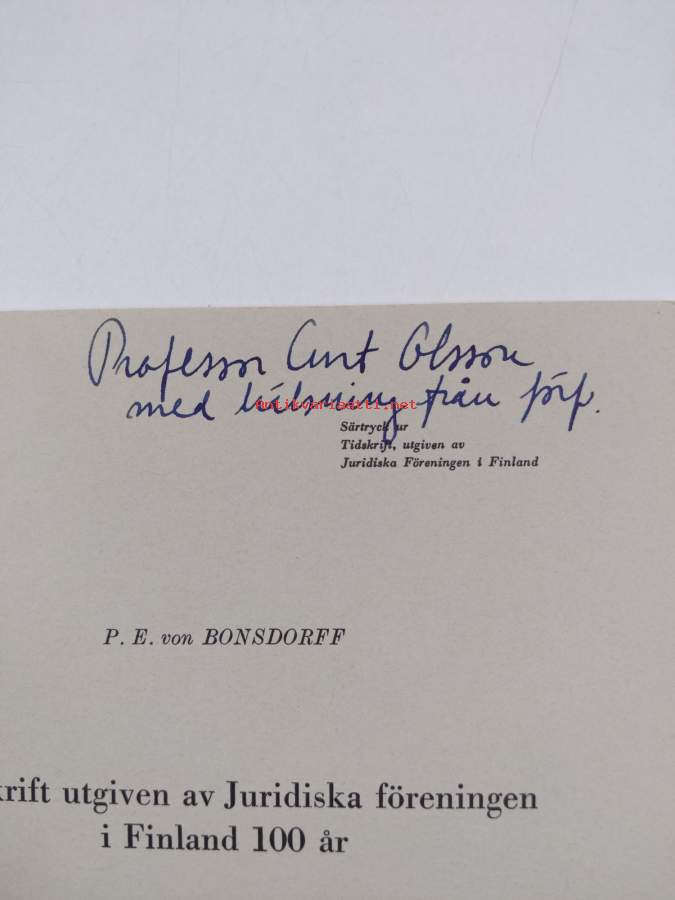 Professor Curt Olsson
med hälsning från förf.
antikvariaatti.net
Särtryck ur
Tidskrift, utgiven av
Juridiska Föreningen i Finland
P. E. von BONSDORFF
krift utgiven av Juridiska föreningen
i Finland 100 år